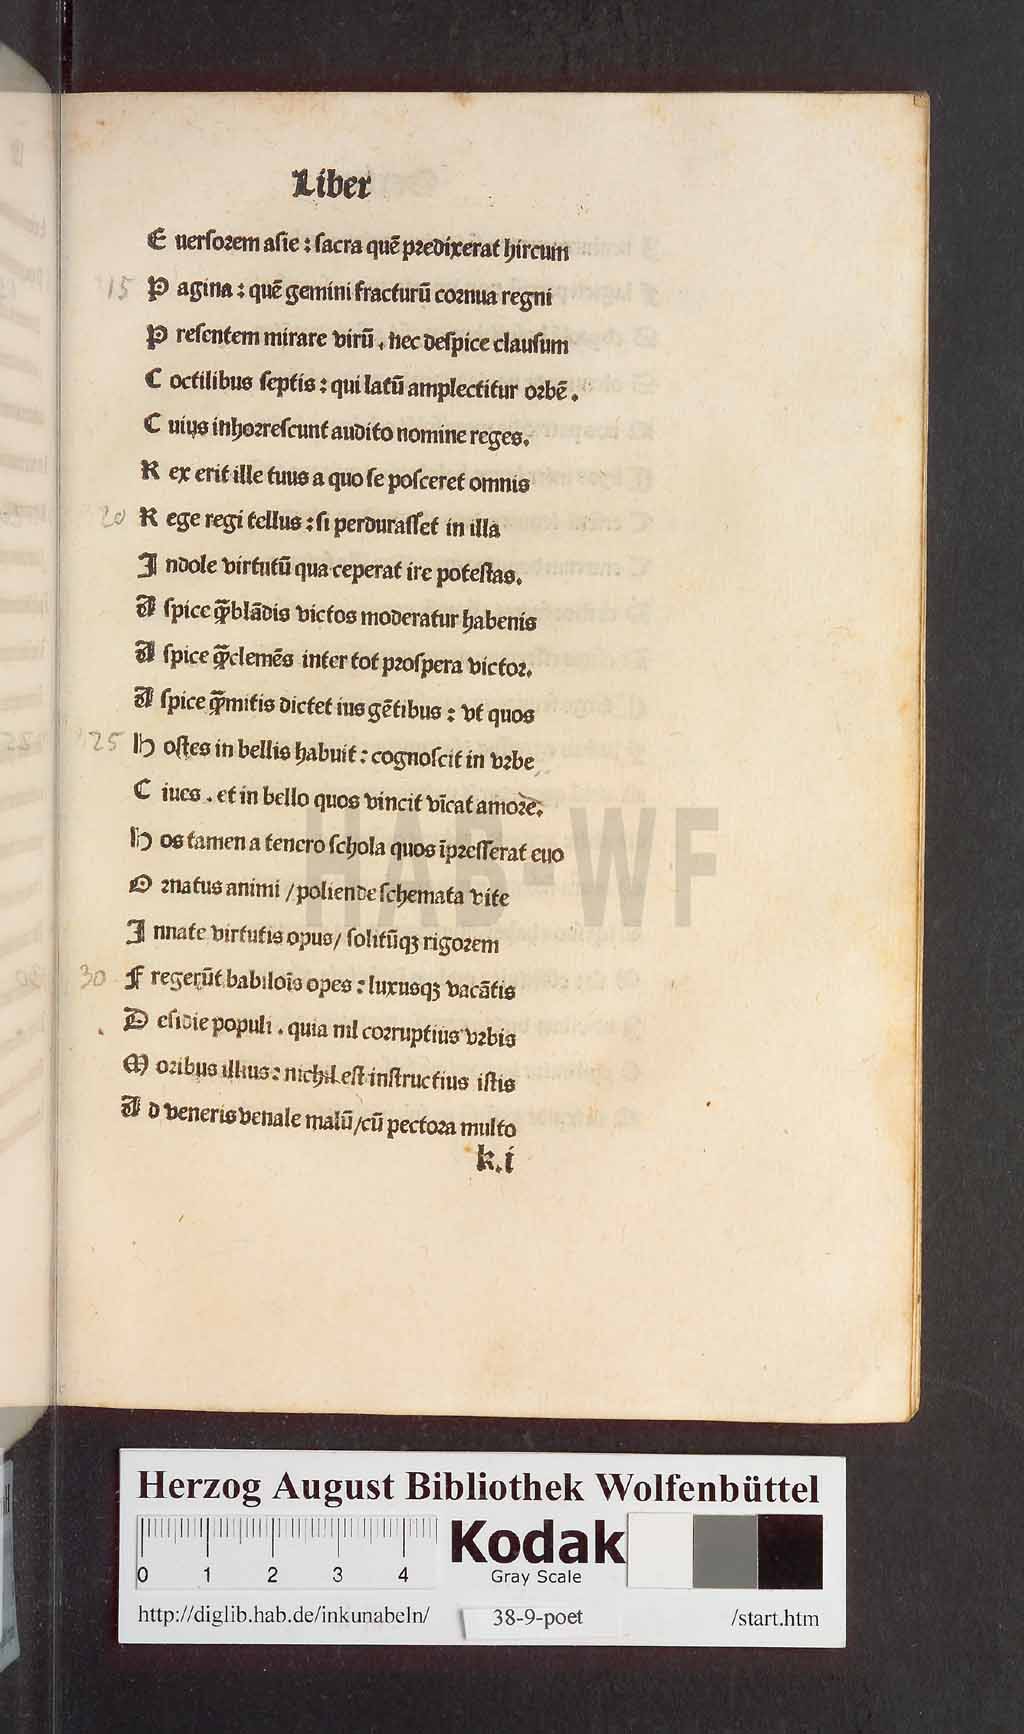 Liber
E uersorem asie : sacra quē predixerat hircum
15 P agina : quē gemini fracturū cornua regni
P resentem mirare virū . nec despice clausum
C octilibus septis : qui latū amplectitur orbē .
C uius inhorrescunt audito nomine reges .
R ex erit ille tuus a quo se posceret omnis
20 R ege regi tellus : si perdurasset in illa
I ndole virtutū qua ceperat ire potestas .
A spice q̄ blādis victos moderatur habenis
A spice q̄ clemēs inter tot prospera victor .
A spice q̄ mitis dictet ius gētibus : vt quos
25 H ostes in bellis habuit : cognoscit in vrbe
C iues . et in bello quos vincit vīcat amore .
H os tamen a tenero schola quos īpresserat euo
O rnatus animi / poliende schemata vite
I nnate virtutis opus / solitūqꝫ rigorem
30 F regerūt babiloīs opes : luxusqꝫ vacātis
D esidie populi . quia nil corruptius vrbis
M oribus illius : nichil est instructius istis
A d veneris venale malū / cū pectora multo
k.i
HAB-WF
Herzog August Bibliothek Wolfenbüttel
0 1 2 3 4
Kodak
Gray Scale
http://diglib.hab.de/inkunabeln/ 38-9-poet /start.htm